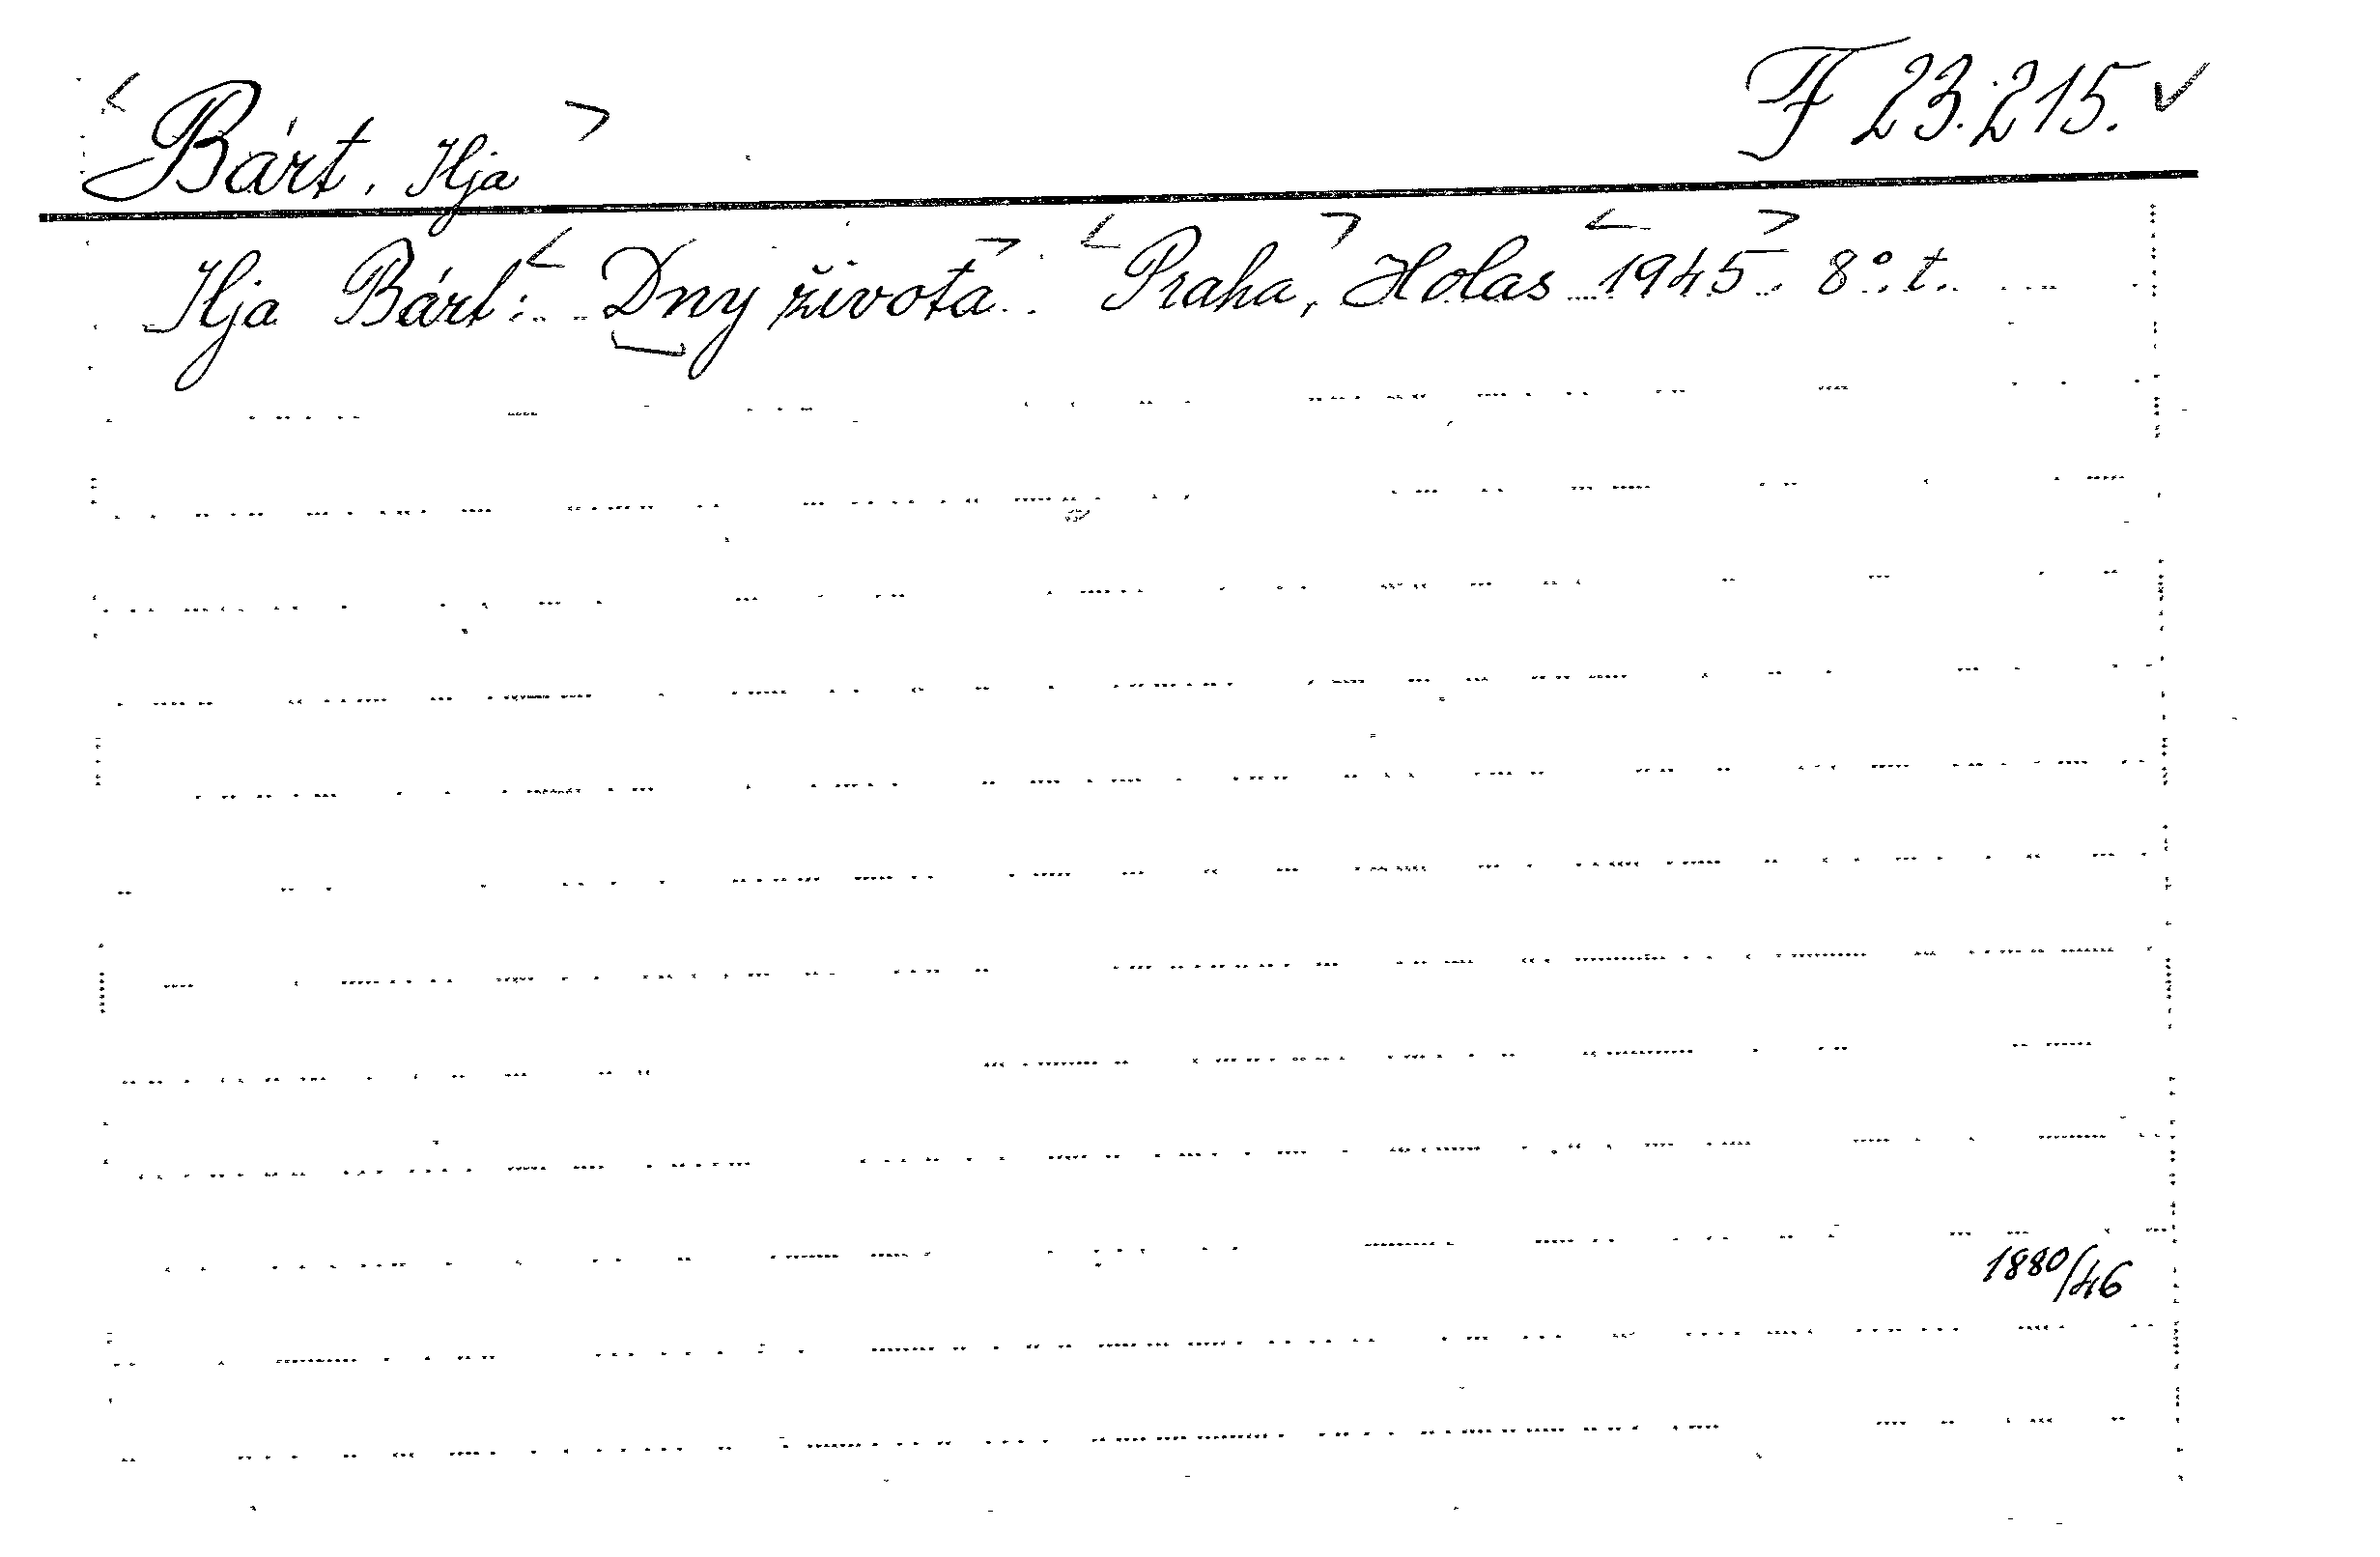 <Bárt, Ilja> F 23.215. ✓
Ilja Bárt: <Dny života>. <Praha,> Holas <1945>. 8°. t.
1880/46